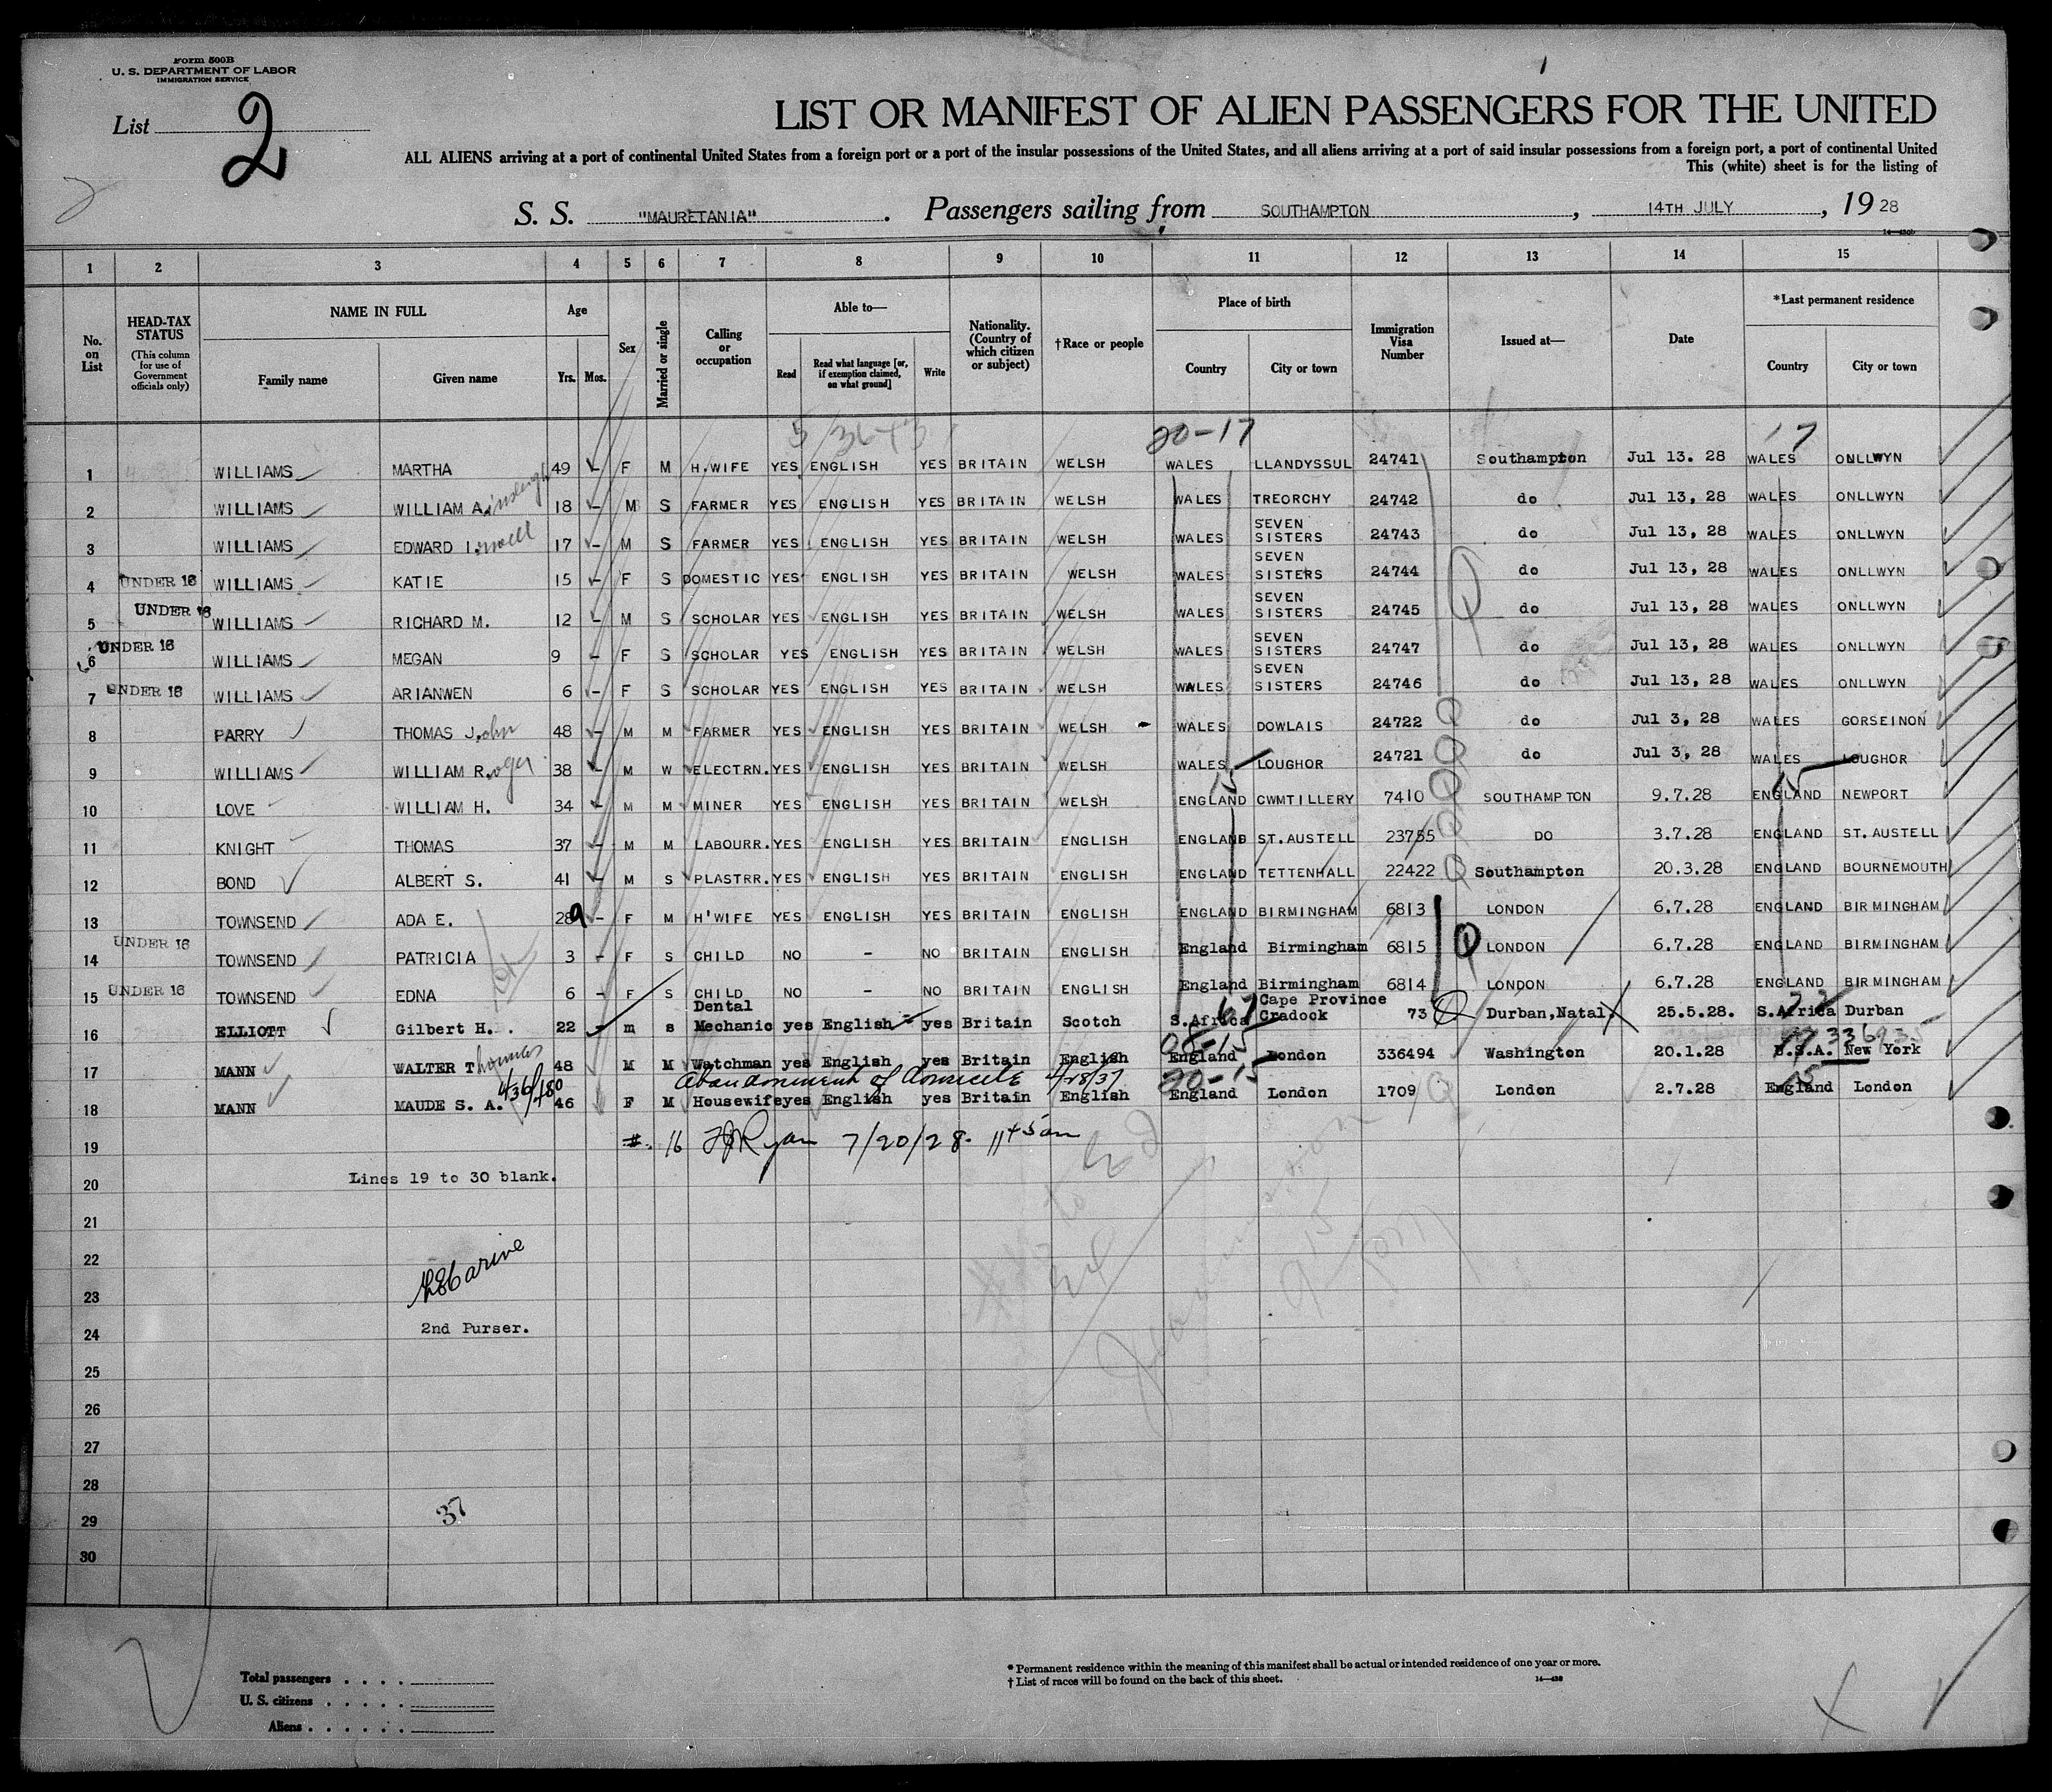 Form 500B
U. S. DEPARTMENT OF LABOR
IMMIGRATION SERVICE
List 2
LIST OR MANIFEST OF ALIEN PASSENGERS FOR THE UNITED
ALL ALIENS arriving at a port of continental United States from a foreign port or a port of the insular possessions of the United States, and all aliens arriving at a port of said insular possessions from a foreign port, a port of continental United
This (white) sheet is for the listing of
S. S. "MAURETANIA". Passengers sailing from SOUTHAMPTON, 14TH JULY, 19 28
1 2 3 4 5 6 7 8 9 10 11 12 13 14 15
No. on List
HEAD-TAX STATUS
(This column for use of Government officials only)
NAME IN FULL
Family name Given name
Age
Yrs. Mos.
Sex
Married or single
Calling or occupation
Able to—
Read
Read what language [or, if exemption claimed, on what ground]
Write
Nationality. (Country of which citizen or subject)
†Race or people
Place of birth
Country City or town
Immigration Visa Number
Issued at—
Date
*Last permanent residence
Country City or town
20-17 17
1 WILLIAMS MARTHA 49 - F M H.WIFE YES ENGLISH YES BRITAIN WELSH WALES LLANDYSSUL 24741 Southampton Jul 13. 28 WALES ONLLWYN
2 WILLIAMS WILLIAM A. 18 - M S FARMER YES ENGLISH YES BRITAIN WELSH WALES TREORCHY 24742 do Jul 13, 28 WALES ONLLWYN
3 WILLIAMS EDWARD I. 17 - M S FARMER YES ENGLISH YES BRITAIN WELSH WALES SEVEN SISTERS 24743 do Jul 13, 28 WALES ONLLWYN
4 UNDER 16 WILLIAMS KATIE 15 - F S DOMESTIC YES ENGLISH YES BRITAIN WELSH WALES SEVEN SISTERS 24744 do Jul 13, 28 WALES ONLLWYN
5 UNDER 16 WILLIAMS RICHARD M. 12 - M S SCHOLAR YES ENGLISH YES BRITAIN WELSH WALES SEVEN SISTERS 24745 do Jul 13, 28 WALES ONLLWYN
6 UNDER 16 WILLIAMS MEGAN 9 - F S SCHOLAR YES ENGLISH YES BRITAIN WELSH WALES SEVEN SISTERS 24747 do Jul 13, 28 WALES ONLLWYN
7 UNDER 16 WILLIAMS ARIANWEN 6 - F S SCHOLAR YES ENGLISH YES BRITAIN WELSH WALES SEVEN SISTERS 24746 do Jul 13, 28 WALES ONLLWYN
8 PARRY THOMAS John 48 - M M FARMER YES ENGLISH YES BRITAIN WELSH WALES DOWLAIS 24722 do Jul 3, 28 WALES GORSEINON
9 WILLIAMS WILLIAM Roger 38 - M W ELECTRN. YES ENGLISH YES BRITAIN WELSH WALES LOUGHOR 24721 do Jul 3, 28 WALES LOUGHOR
15 15
10 LOVE WILLIAM H. 34 - M M MINER YES ENGLISH YES BRITAIN WELSH ENGLAND CWMTILLERY 7410 SOUTHAMPTON 9.7.28 ENGLAND NEWPORT
11 KNIGHT THOMAS 37 - M M LABOURR. YES ENGLISH YES BRITAIN ENGLISH ENGLAND ST.AUSTELL 23755 DO 3.7.28 ENGLAND ST.AUSTELL
12 BOND ALBERT S. 41 - M S PLASTRR. YES ENGLISH YES BRITAIN ENGLISH ENGLAND TETTENHALL 22422 Southampton 20.3.28 ENGLAND BOURNEMOUTH
13 TOWNSEND ADA E. 289 - F M H'WIFE YES ENGLISH YES BRITAIN ENGLISH ENGLAND BIRMINGHAM 6813 LONDON 6.7.28 ENGLAND BIRMINGHAM
14 UNDER 16 TOWNSEND PATRICIA 3 - F S CHILD NO - NO BRITAIN ENGLISH England Birmingham 6815 LONDON 6.7.28 ENGLAND BIRMINGHAM
15 UNDER 16 TOWNSEND EDNA 6 - F S CHILD NO - NO BRITAIN ENGLISH England Birmingham 6814 LONDON 6.7.28 ENGLAND BIRMINGHAM
16 ELLIOTT Gilbert H. 22 - m s Dental Mechanic yes English yes Britain Scotch S.Africa Cape Province Cradock 73 Durban,Natal. 25.5.28. S.Africa Durban
17 MANN WALTER Thomas 48 M M Watchman yes English yes Britain English England London 336494 Washington 20.1.28 U.S.A. New York
Abandonment of domicile 4/28/37 20-15 15
18 MANN MAUDE S. A. 46 F M Housewife yes English yes Britain English England London 1709 London 2.7.28 England London
19 #. 16 Ryan 7/20/28.
20 Lines 19 to 30 blank.
21
22
23
24 2nd Purser.
25
26
27
28
29 37
30
Total passengers . . . .
U. S. citizens . . . . .
Aliens . . . . . .
* Permanent residence within the meaning of this manifest shall be actual or intended residence of one year or more.
† List of races will be found on the back of this sheet.